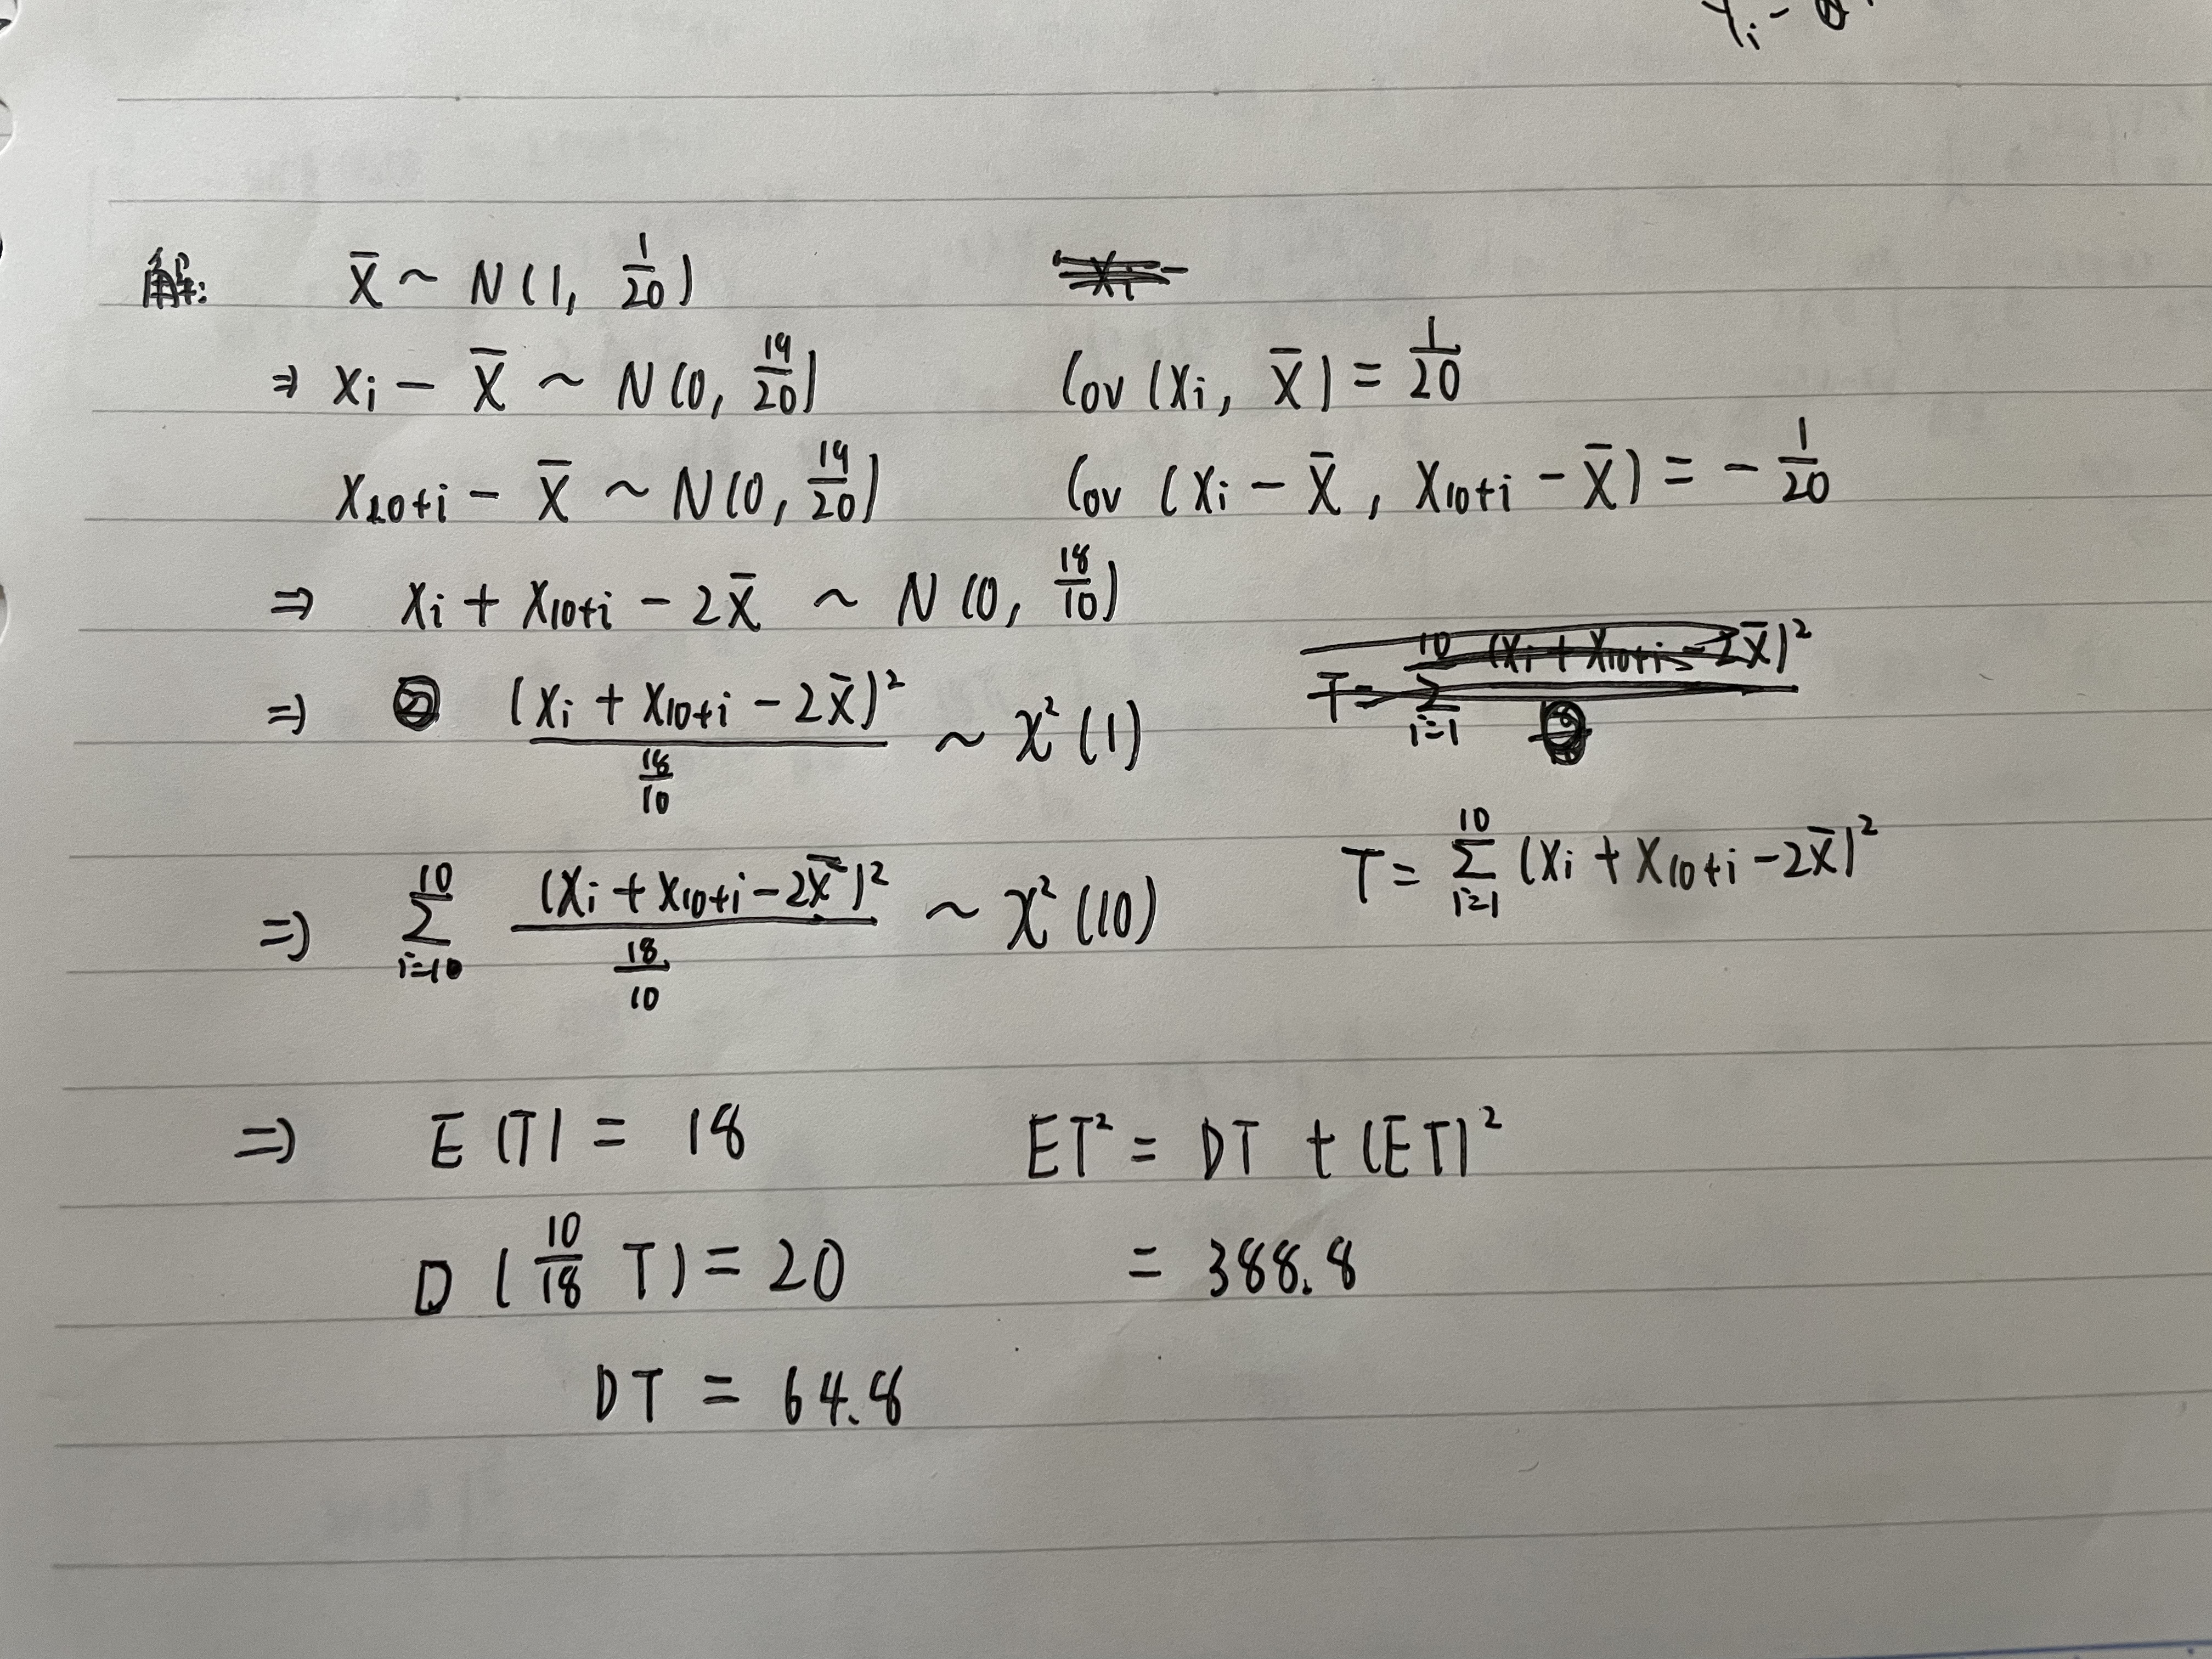 Yi -
解: X̄ ~ N(1, 1/20)
⇒ Xi - X̄ ~ N(0, 19/20) Cov(Xi, X̄) = 1/20
X10+i - X̄ ~ N(0, 19/20) Cov(Xi - X̄, X10+i - X̄) = - 1/20
⇒ Xi + X10+i - 2X̄ ~ N(0, 18/10)
⇒ (Xi + X10+i - 2X̄)² / (18/10) ~ χ²(1)
T = ∑_{i=1}^{10} (Xi + X10+i - 2X̄)²
⇒ ∑_{i=10}^{10} (Xi + X10+i - 2X̄)² / (18/10) ~ χ²(10)
⇒ E(T) = 18 ET² = DT + (ET)²
D(10/18 T) = 20 = 388.8
DT = 64.8